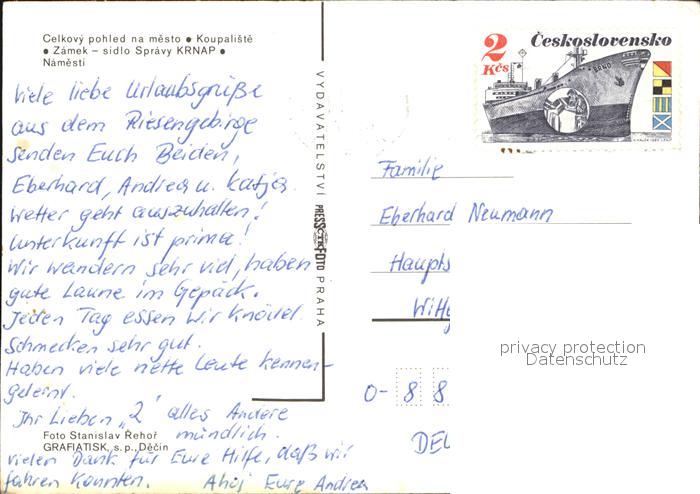 Celkový pohled na město ● Koupaliště
● Zámek – sídlo Správy KRNAP ●
Náměstí
Viele liebe Urlaubsgrüße
aus dem Riesengebirge
senden Euch Beiden,
Eberhard, Andrea u. Katja.
Wetter geht auszuhalten!
Unterkunft ist prima!
Wir wandern sehr viel, haben
gute Laune im Gepäck.
Jeden Tag essen wir Knödel.
Schmecken sehr gut.
Haben viele nette Leute kennen-
gelernt.
Ihr Lieben „2" alles Andere
mündlich.
Foto Stanislav Řehoř
GRAFIATISK, s.p., Děčín
Vielen Dank für Eure Hilfe, daß wir
fahren konnten. Ahoj Eure Andrea
VYDAVATELSTVÍ PRESSFOTO PRAHA
2 Kčs
Československo
BRNO
Familie
Eberhard Neumann
Haupts
Witt
O- 8 8
DEU
privacy protection
Datenschutz